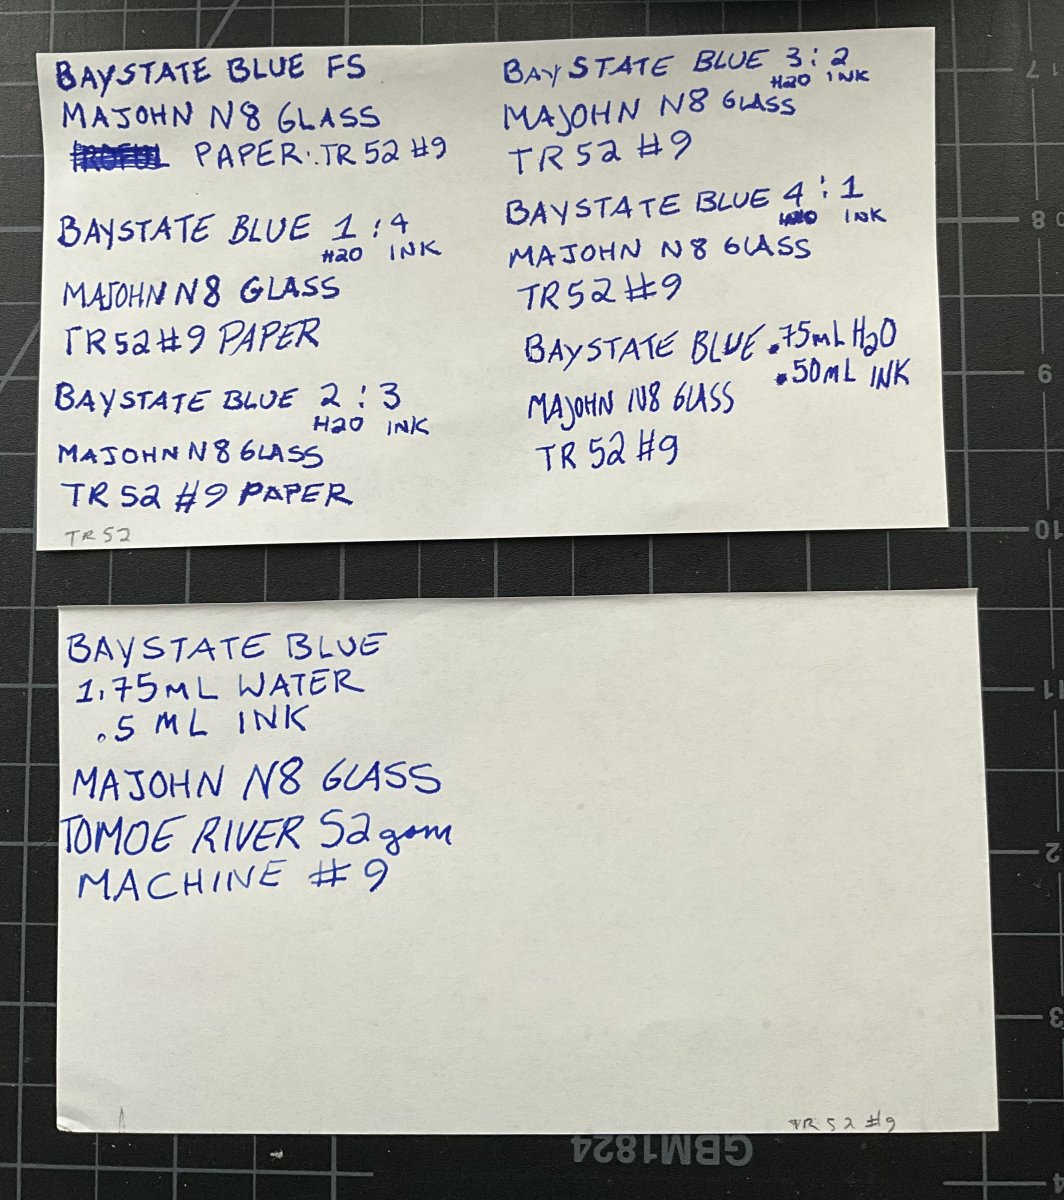 BAYSTATE BLUE FS
MAJOHN N8 GLASS
PAPER: TR 52 #9
BAYSTATE BLUE 1 : 4
H20 INK
MAJOHN N8 GLASS
TR 52 #9 PAPER
BAYSTATE BLUE 2 : 3
H20 INK
MAJOHN N8 GLASS
TR 52 #9 PAPER
TR 52
BAYSTATE BLUE 3 : 2
H20 INK
MAJOHN N8 GLASS
TR 52 #9
BAYSTATE BLUE 4 : 1
INK
MAJOHN N8 GLASS
TR 52 #9
BAYSTATE BLUE .75mL H2O
.50mL INK
MAJOHN N8 GLASS
TR 52 #9
BAYSTATE BLUE
1.75mL WATER
.5 mL INK
MAJOHN N8 GLASS
TOMOE RIVER 52 gsm
MACHINE #9
TR 52 #9
GBM1824
7
8
9
10
11
2
3